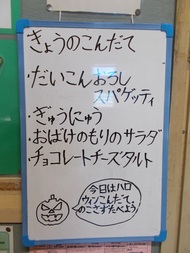 きょうのこんだて
・だいこんおろし
スパゲッティ
・ぎゅうにゅう
・おばけのもりのサラダ
・チョコレートチーズタルト
今日はハロ
ウィンこんだて。
のこさずたべよう